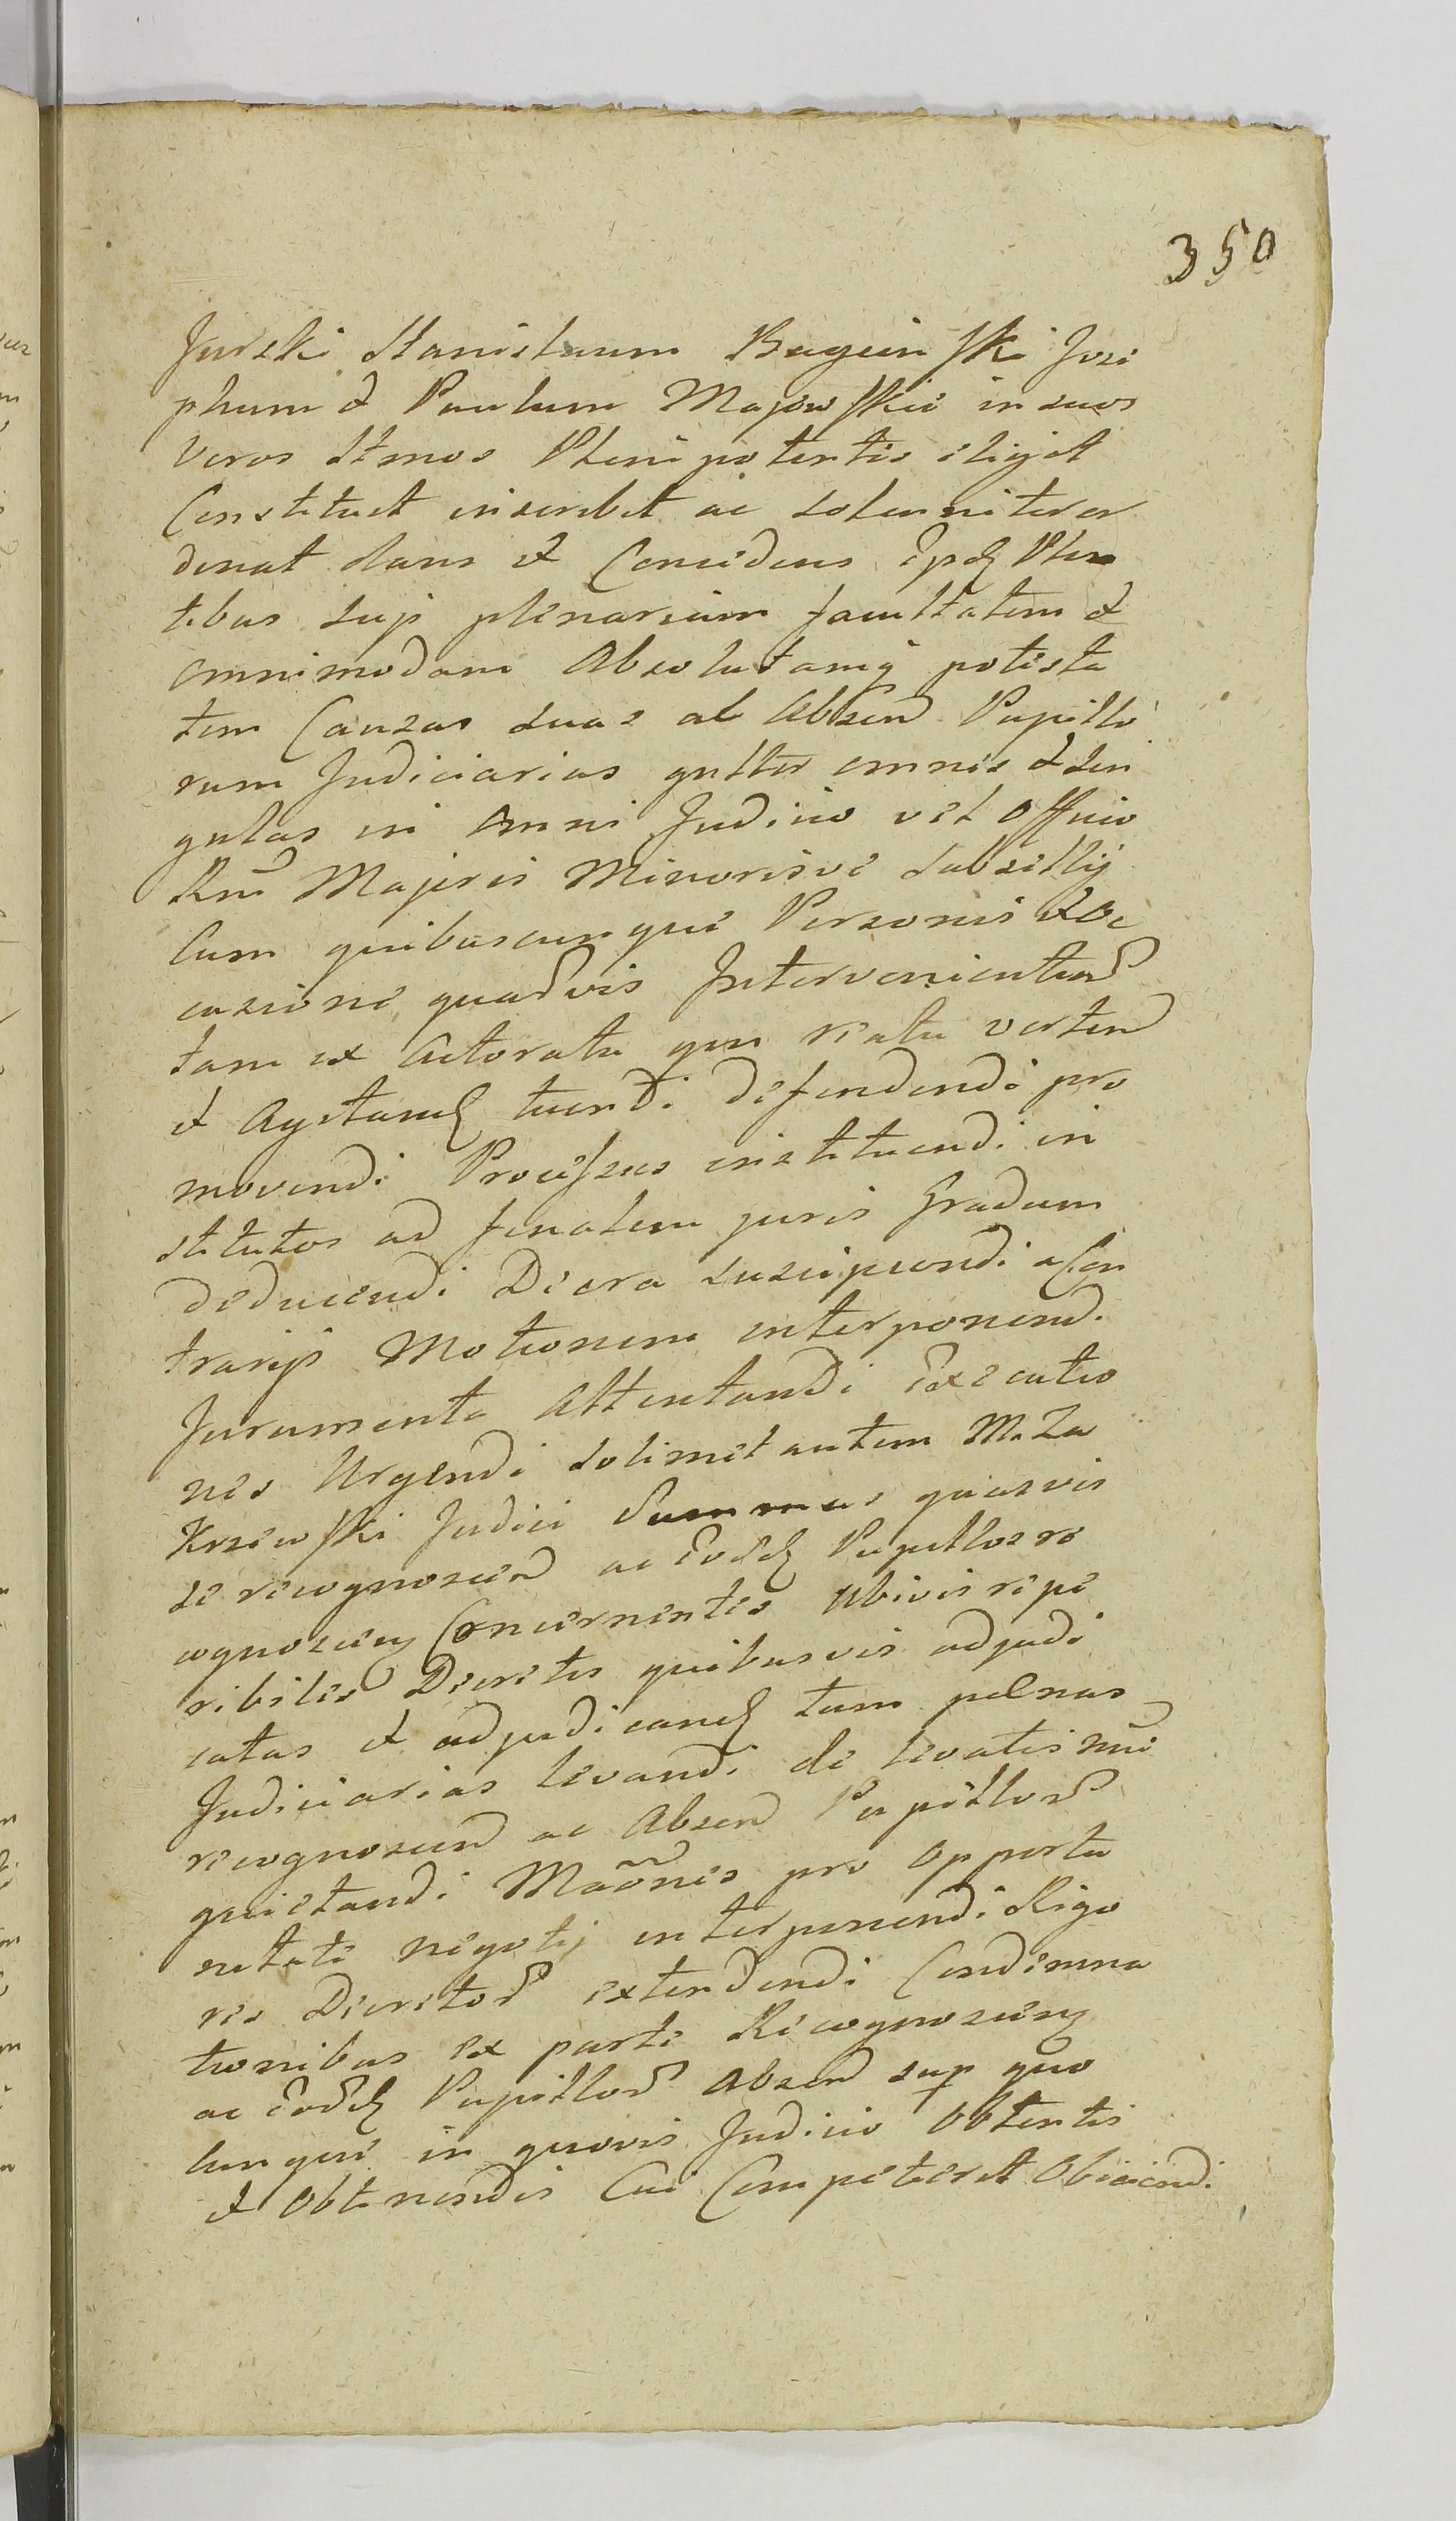 350
Jurski Stanislaum Bagieinski Jose
phum et Paulum Majewskie in suos
Veros Ltmos Plenipotentes eligit
Constituit inscribit ac solenniter or
dinat dans et Concedens Ipsis Plen
tibus suis plenariam facultatem et
omnimodam Absolutamq potesta
tem Causas suas ac Absend Pupillo
rum Judiciarias gnlter omnes et sin
gulas in omni Judicio vel Officio
Rni Majoris Minorisve Subsellij
Cum quibuscunque Personis et oc
casione quarvis Intervenientiud
tam ex Actoratu qm reatu verten
et Agitand tuendi defendendi pro
movendi Processus instituendi in
stitutos ad finalem juris Gradum
deducendi Decra suscipiendi a Con
trarijs Motionem interponend.
Juramenta Attentandi Executio
nes Urgendi solimet autem M. Za
krzewski Judici Summas quasvis
se recognoscen ac eosd Pupillos re
cognoscen Concernentes ubivis repe
ribiles Decretis quibusvis adjudi
catas et adjudicand tum poenas
Judiciarias levandi de levatis nni
recognoscend ac Absend Pupillor
quietandi Maones pro opportu
nitate negotij interponendi Rigo
res Decretor extendendi Condemna
tionibus ex parte Recognoscen
ac eosd Pupillor Absend sup quo
cunque in quovis Judicio Obtentis
et Obtinendis Cui Competierit Obiiciendi